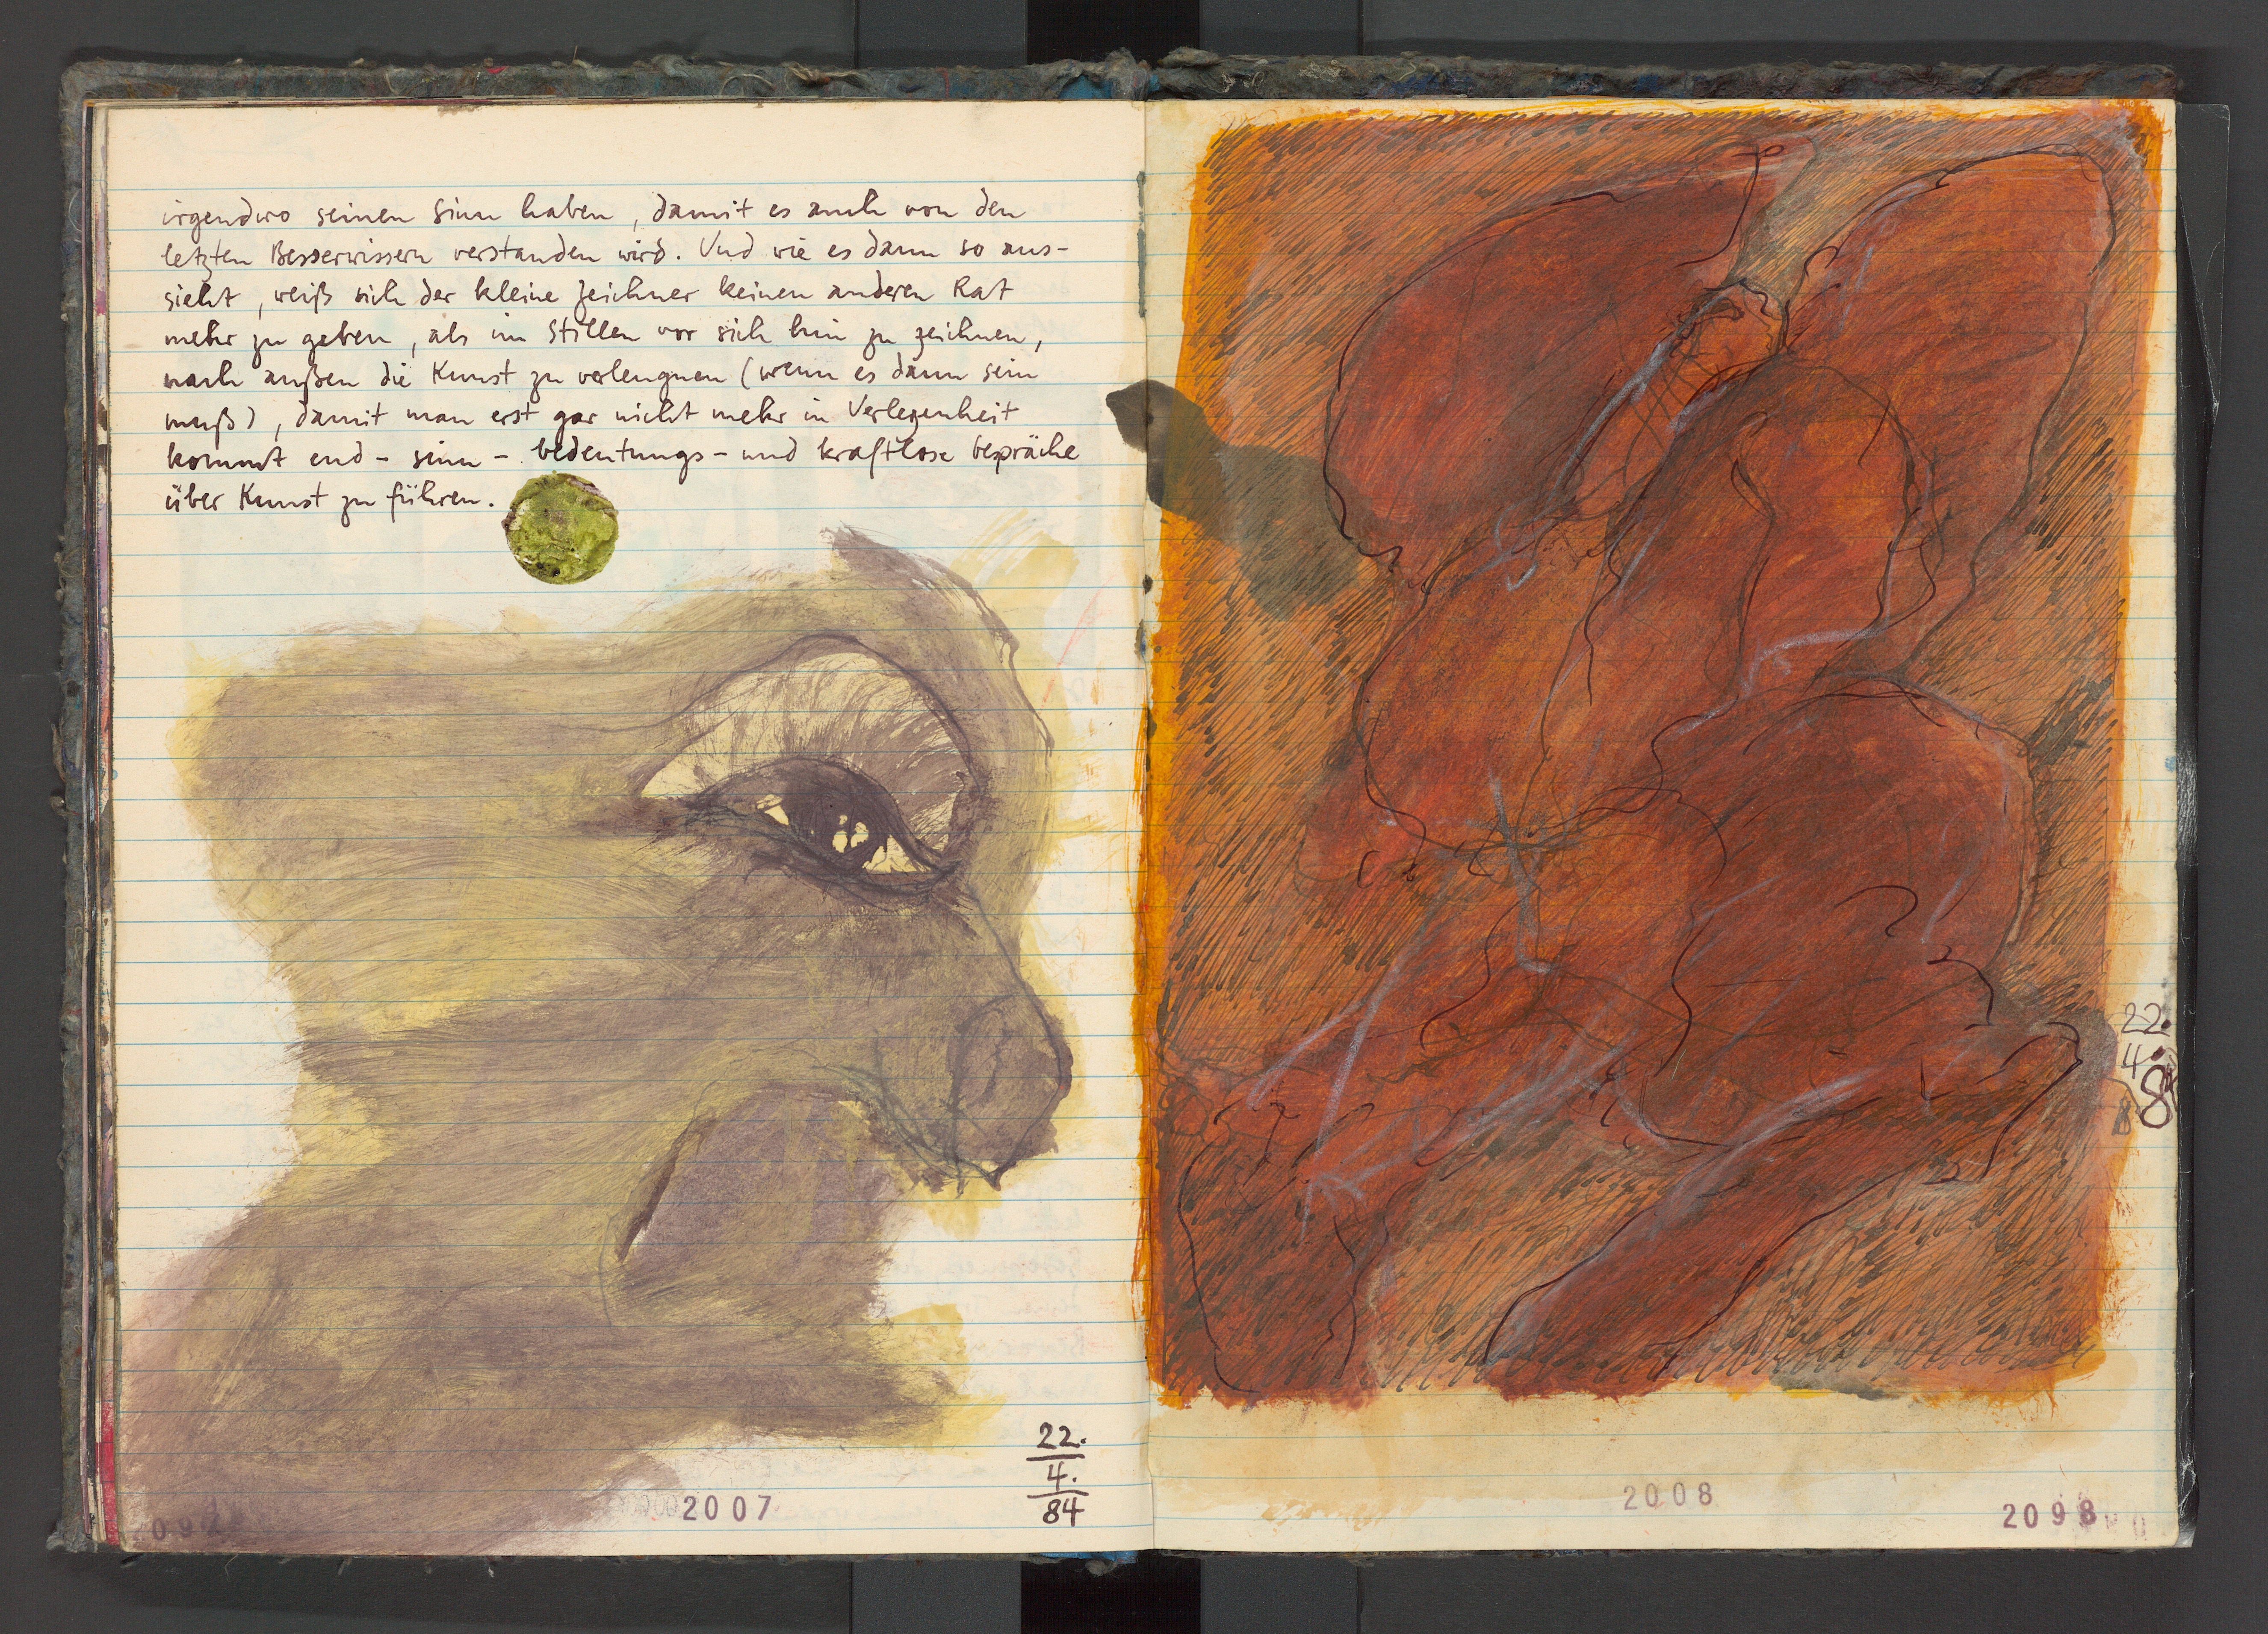 irgendwo seinen Sinn haben, damit es auch von den
letzten Besserwissern verstanden wird. Und wie es dann so aus-
sieht, weiß sich der kleine Zeichner keinen anderen Rat
mehr zu geben, als im Stillen vor sich hin zu zeichnen,
nach außen die Kunst zu verleugnen (wenn es dann sein
muß), damit man erst gar nicht mehr in Verlegenheit
kommt end- sinn- bedeutungs- und kraftlose Gespräche
über Kunst zu führen.
22.
4.
84
2007
22.
4.
84
2008
2098